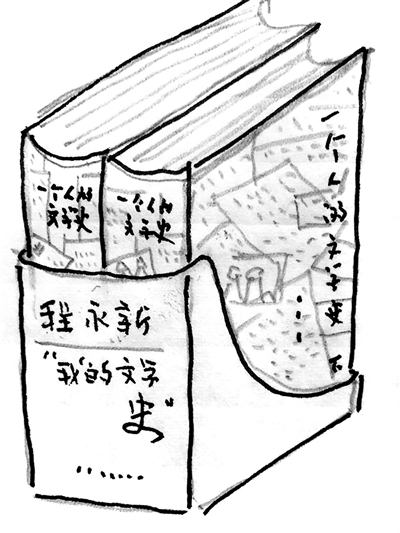 一个人的
文学史
一个人的
文学史
一个人的文学史 下
程永新
“‘我’的文学
史”
……